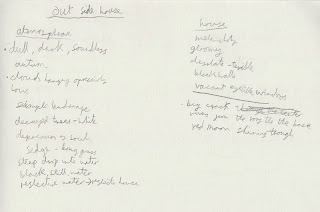 out side house
atmosphere
• dull, dark, soundless
autumn
• clouds hanging opressively
low
landscape
decayed trees - white
depression of soul
sedge - long grass
steep drop into water
black, still water
reflective water →
house
house
melancholy
gloomy
desolate - terrible
bleak walls
vacant eyelike windows
• big crack -
runs from the roof to the base
red moon shining through